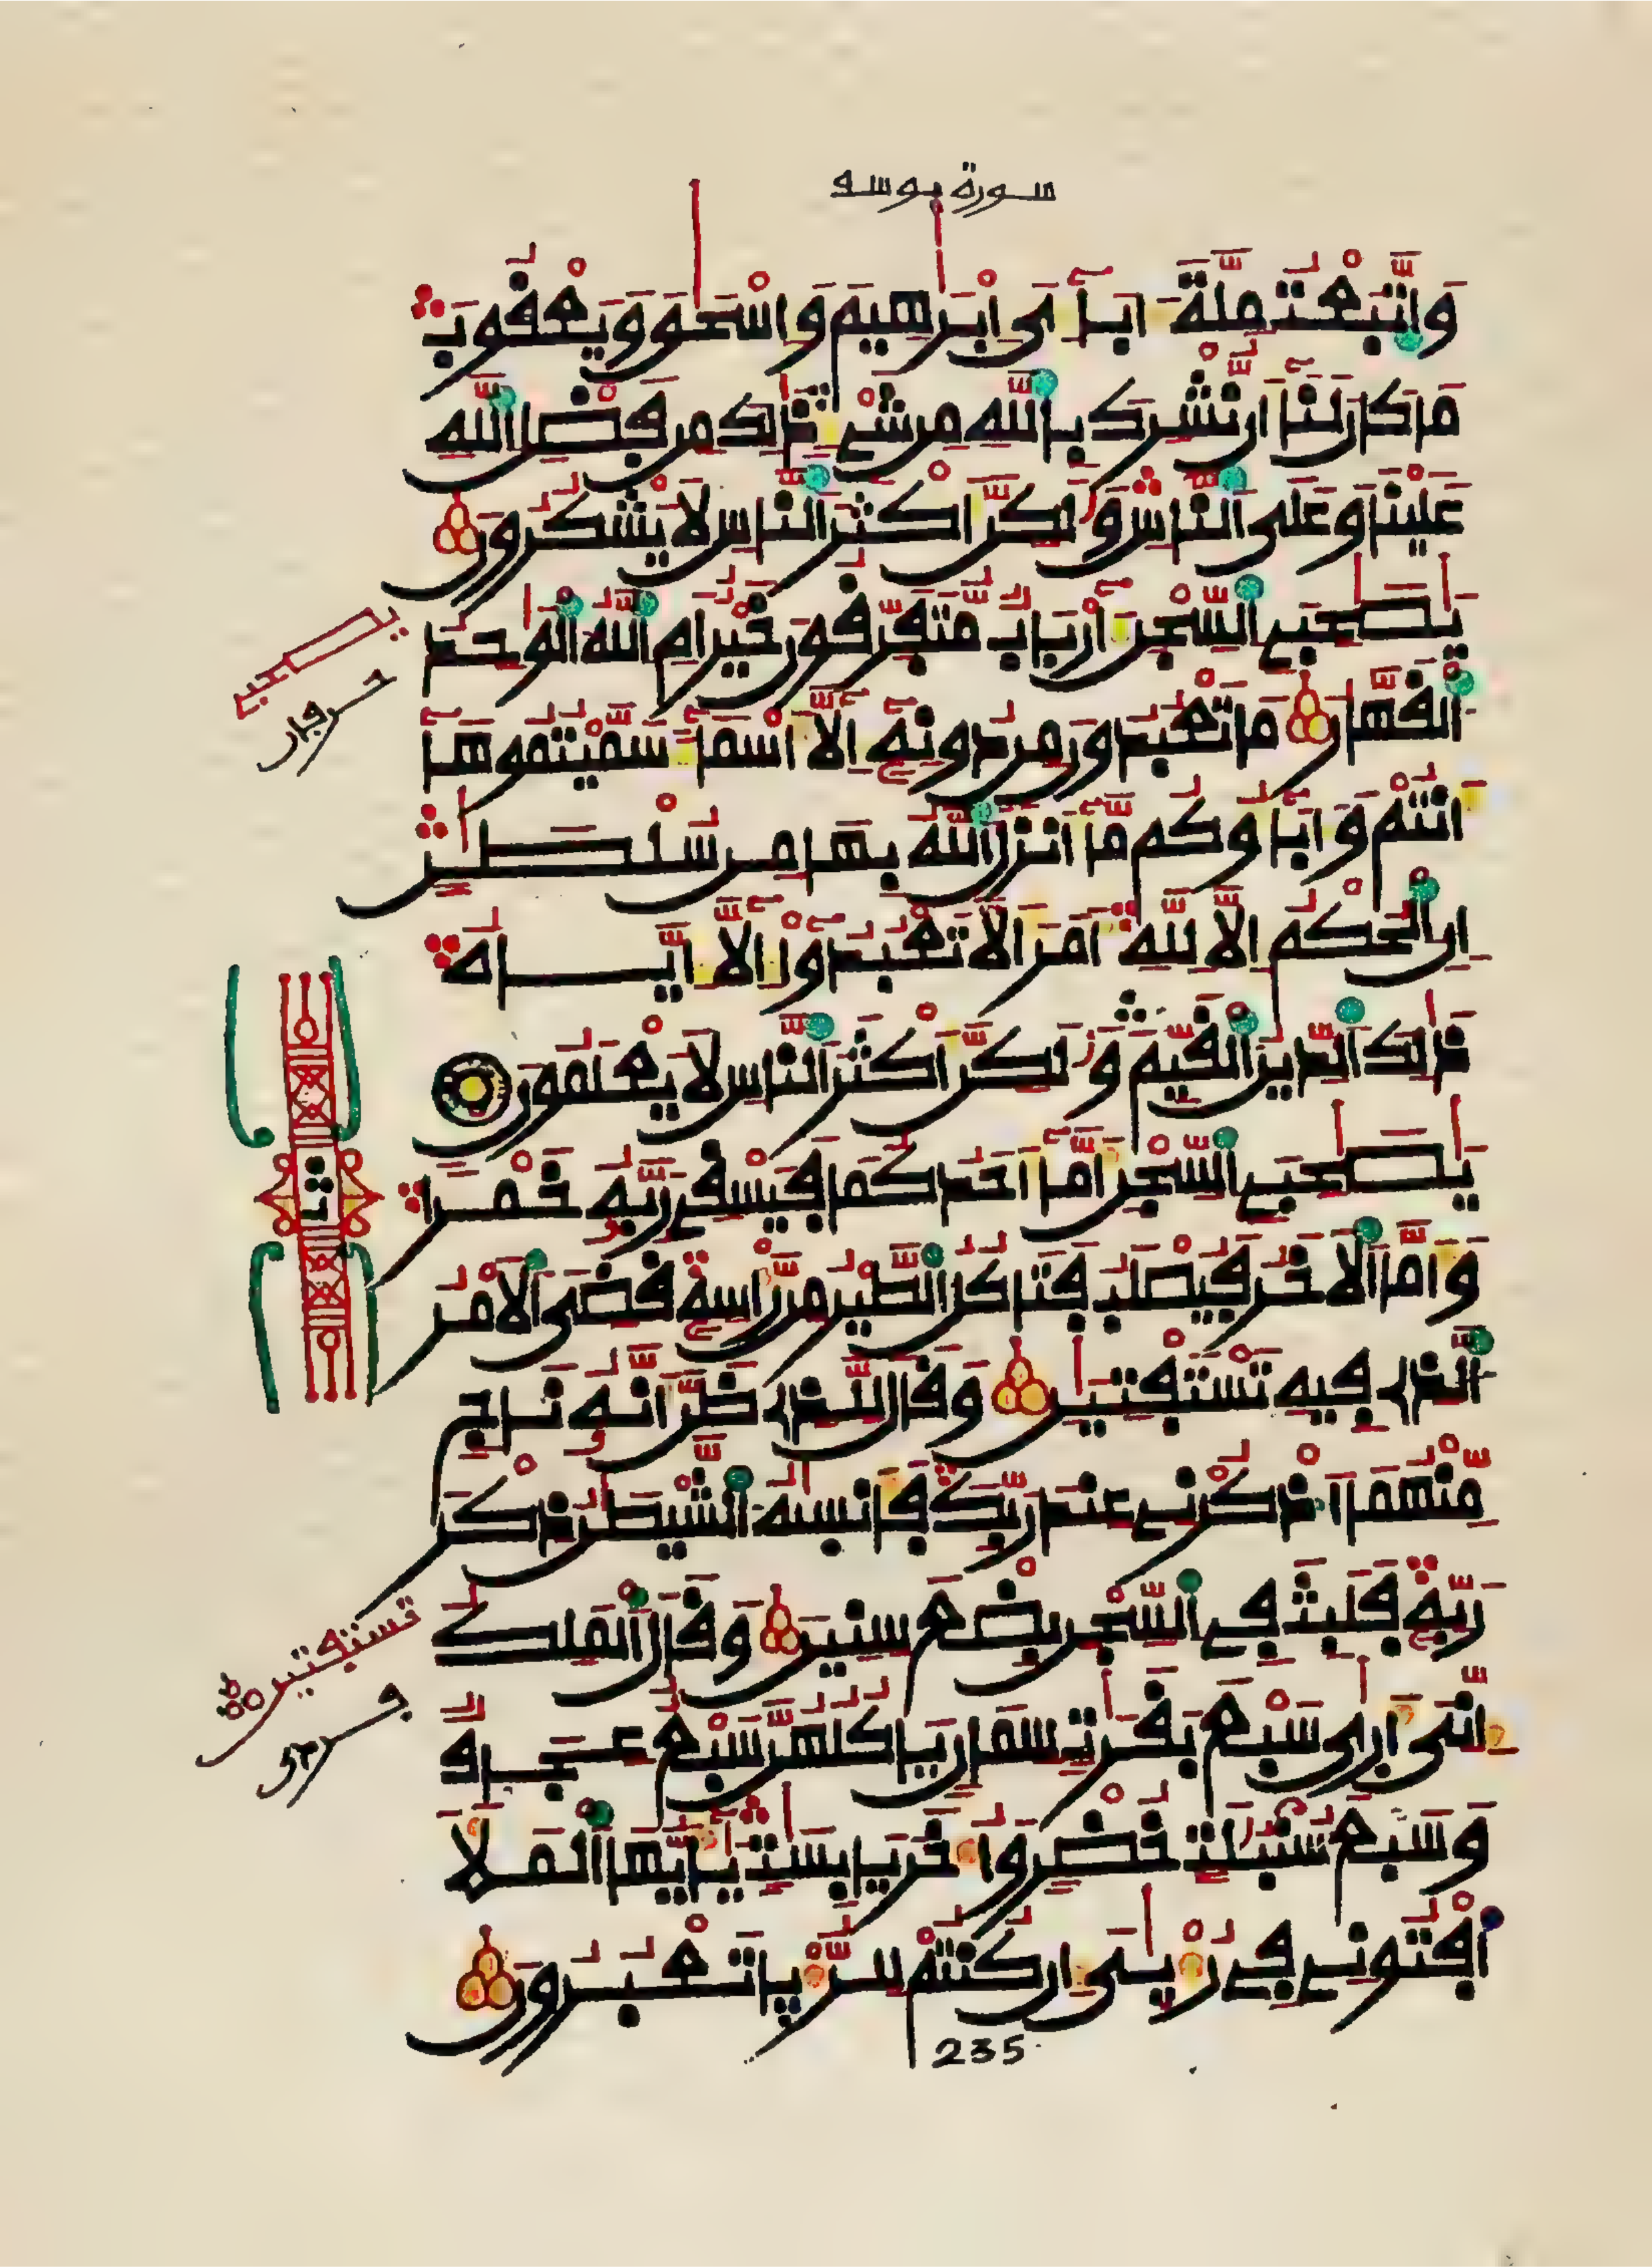 سورة يوسف
وَاتَّبَعْتُ مِلَّةَ ءَابَآءِى إِبْرَٰهِيمَ وَإِسْحَٰقَ وَيَعْقُوبَ
مَا كَانَ لَنَآ أَن نُّشْرِكَ بِاللَّهِ مِن شَىْءٍ ذَٰلِكَ مِن فَضْلِ اللَّهِ
عَلَيْنَا وَعَلَى النَّاسِ وَلَٰكِنَّ أَكْثَرَ النَّاسِ لَا يَشْكُرُونَ
يَٰصَٰحِبَىِ السِّجْنِ ءَأَرْبَابٌ مُّتَفَرِّقُونَ خَيْرٌ أَمِ اللَّهُ الْوَٰحِدُ
الْقَهَّارُ مَا تَعْبُدُونَ مِن دُونِهِ إِلَّآ أَسْمَآءً سَمَّيْتُمُوهَآ
أَنتُمْ وَءَابَآؤُكُم مَّآ أَنزَلَ اللَّهُ بِهَا مِن سُلْطَٰنٍ
إِنِ الْحُكْمُ إِلَّا لِلَّهِ أَمَرَ أَلَّا تَعْبُدُوٓا إِلَّآ إِيَّاهُ
ذَٰلِكَ الدِّينُ الْقَيِّمُ وَلَٰكِنَّ أَكْثَرَ النَّاسِ لَا يَعْلَمُونَ
يَٰصَٰحِبَىِ السِّجْنِ أَمَّآ أَحَدُكُمَا فَيَسْقِى رَبَّهُ خَمْرًا
وَأَمَّا الْأَخَرُ فَيُصْلَبُ فَتَأْكُلُ الطَّيْرُ مِن رَّأْسِهِ قُضِىَ الْأَمْرُ
الَّذِى فِيهِ تَسْتَفْتِيَٰنِ وَقَالَ لِلَّذِى ظَنَّ أَنَّهُ نَاجٍ
مِّنْهُمَا اذْكُرْنِى عِندَ رَبِّكَ فَأَنسَىٰهُ الشَّيْطَٰنُ ذِكْرَ
رَبِّهِ فَلَبِثَ فِى السِّجْنِ بِضْعَ سِنِينَ وَقَالَ الْمَلِكُ
إِنِّىَ أَرَىٰ سَبْعَ بَقَرَٰتٍ سِمَانٍ يَأْكُلُهُنَّ سَبْعٌ عِجَافٌ
وَسَبْعَ سُنبُلَٰتٍ خُضْرٍ وَأُخَرَ يَابِسَٰتٍ يَٰٓأَيُّهَا الْمَلَأُ
أَفْتُونِى فِى رُءْيَٰىَ إِن كُنتُمْ لِلرُّءْيَا تَعْبُرُونَ
235
يصاحبي
تستفتين